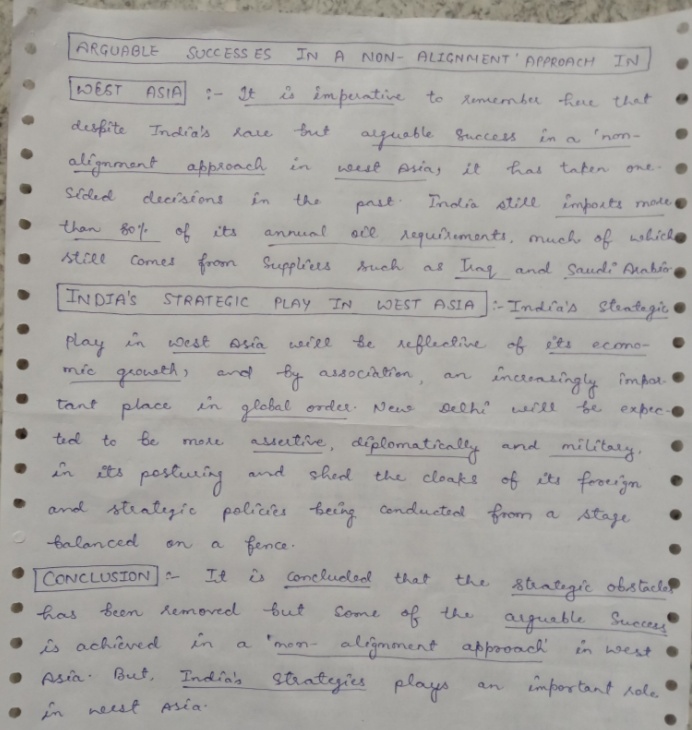 ARGUABLE SUCCESSES IN A NON-ALIGNMENT' APPROACH IN
WEST ASIA :- It is imperative to remember here that
despite India's rare but arguable success in a 'non-
alignment approach in west Asia, it has taken one-
sided decisions in the past. India still imports more
than 80% of its annual oil requirements, much of which
still comes from suppliers such as Iraq and Saudi Arabia
INDIA'S STRATEGIC PLAY IN WEST ASIA :- India's Strategic
play in west Asia will be reflective of its econo-
mic growth, and by association, an increasingly impor-
tant place in global order. New Delhi will be expec-
ted to be more assertive, diplomatically and military,
in its posturing and shed the cloaks of its foreign
and strategic policies being conducted from a stage
balanced on a fence.
CONCLUSION :- It is concluded that the strategic obstacles
has been removed but some of the arguable success
is achieved in a 'non- alignment approach' in west
Asia. But, India's strategies plays an important role
in west Asia.